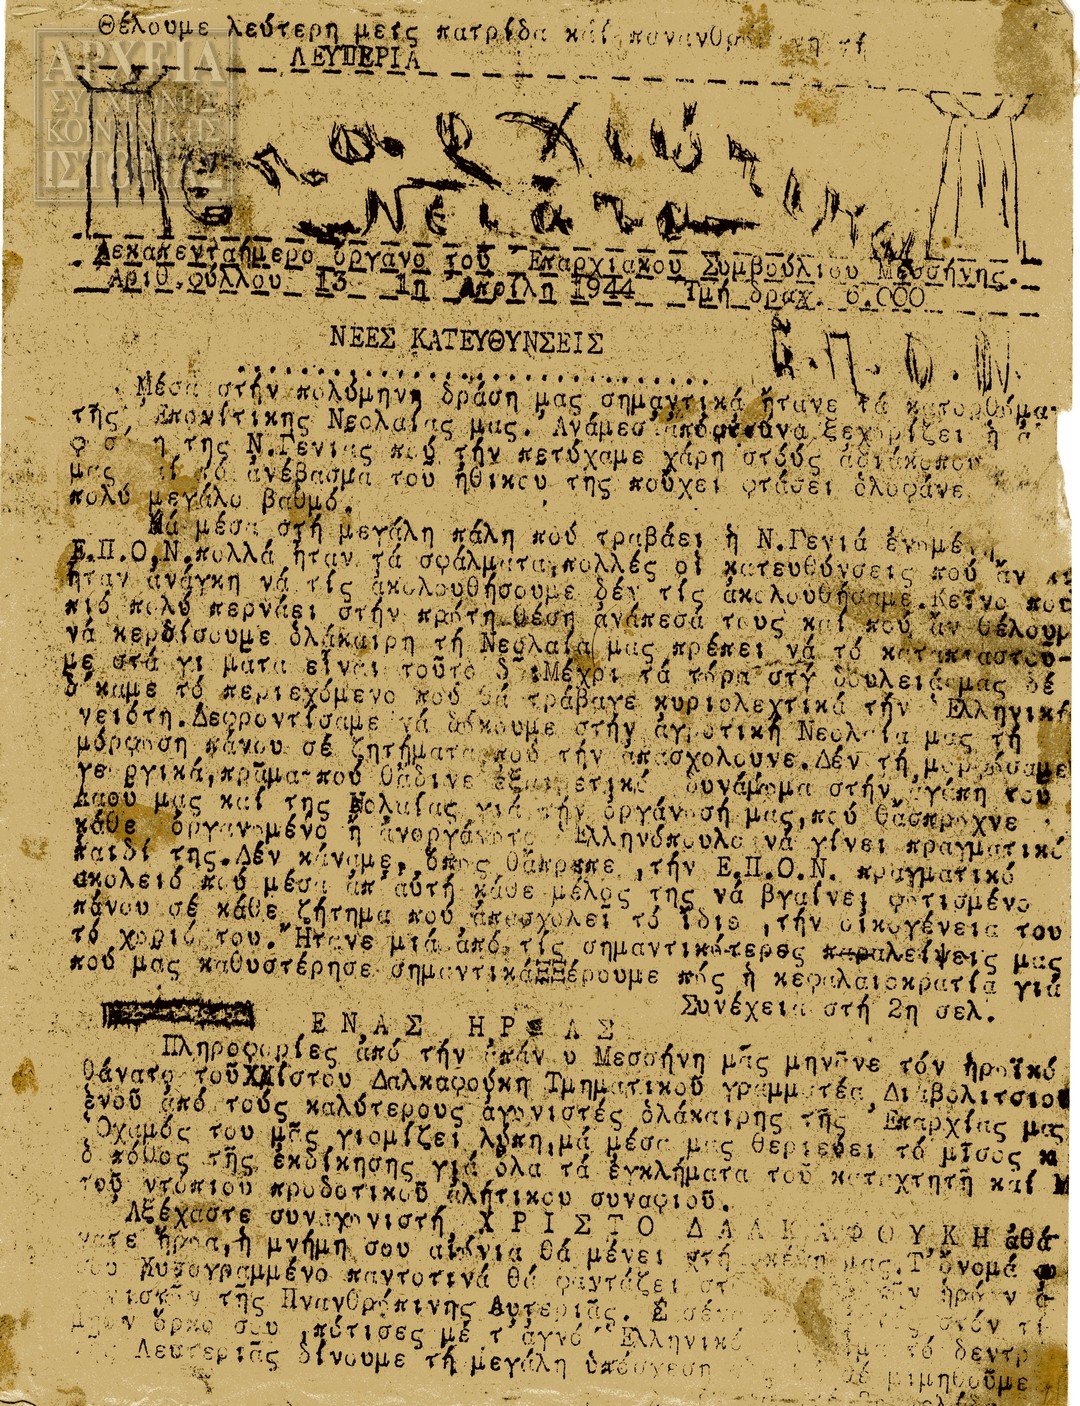 Θέλουμε λεύτερη μεις πατρίδα καί πανανθρ
ΛΕΥΤΕΡΙΑ
ΑΡΧΕΙΑ
ΣΥΓΧΡΟΝΗΣ
ΚΟΙΝΩΝΙΚΗΣ
ΙΣΤΟΡΙΑΣ
Νειάτα
Δεκαπενταήμερο όργανο του Ἐπαρχιακου Συμβούλιου Μεσσήνης.
Αριθ.φύλλου 13 1η Ἀπρίλη 1944 Τμή δραχ. 6.000
ΝΕΕΣ ΚΑΤΕΥΘΥΝΣΕΙΣ
Ε.Π.Ο.Ν.
Μέσα στήν πολύμηνη δράση μας σημαντικά ἤτανε τά κατορθώμα
τῆς Ἐπονίτικης Νεολαίας μας. Ἀνάμεσ ξεχωρίζει ἡ
της Ν.Γενιας πού τήν πετύχαμε χάρη στούς ἀδιάκοπου
μας τό ἀνέβασμα του ἠθικου της πούχει φτάσει ὁλοφάνε
πολύ μεγάλο βαθμό.
Μά μέσα στή μεγάλη πάλη πού τραβάει ἡ Ν.Γενιά ἑνωμένη
Ε.Π.Ο.Ν.πολλά ἤταν τά σφάλματα,πολλές οἱ κατευθύνσεις πού ἄν
ἤταν ἀνάγκη νά τίς ἀκολουθήσουμε δέν τίς ἀκολουθήσαμε.Κεῖνο που
πιό πολύ περνάει στήν πρώτη θέση ἀνάπεσά τους καί πού ἄν θέλουμ
νά κερδίσουμε ὁλάκαιρη τή Νεολαία μας πρέπει νά τό καταπιαστοῦ-
με στά γι ματα εἶναι τοῦτο δῶ:Μέχρι τά τώρα στή δουλειά μας δέ
δ'καμε τό περιεχόμενο πού θά τράβαγε κυριολεχτικά τήν Ἑλληνική
νειότη.Δεφροντίσαμε νά δόκουμε στήν ἀγροτική Νεολαία μας τή
μόρφωση πάνου σέ ζητήματα πού τήν ἀπασχολουνε.Δέν τή μορφώσαμε
γεωργικά,πρᾶμα πού θἄδινε ἐξαιρετικό δυνάμωμα στήν ἀγάπη του
Λαου μας καί της Νολαίας γιά τήν ὀργάνωσή μας,πού θἄσπρωχνε
κάθε ὀργανωμένο ἤ ἀνοργάνωτο Ἑλληνόπουλο νά γίνει πραγματικό
παιδί της.Δέν κάναμε, ὅπως θἄπρεπε ,τήν Ε.Π.Ο.Ν. πραγματικό
σκολειό πού μέσα ἀπ'αὐτή κάθε μέλος της νά βγαίνει φωτισμένο
πάνου σέ κάθε ζήτημα πού ἀπασχολεῖ τό ἴδιο ,τήν οἰκογένεια του
τό χωριό του. Ἤτανε μιά ἀπό τίς σημαντικώτερες παραλείψεις μας
πού μας καθυστέρησε σημαντικά Ξέρουμε πώς ἡ κεφαλαιοκρατία γιά
Συνέχεια στή 2η σελ.
ΕΝΑΣ ΗΡΩΑΣ
Πληροφορίες ἀπό τήν ἀπάν υ Μεσσήνη μᾶς μηνᾶνε τόν ἡρωϊκό
θάνατο τοῦ Χρίστου Δαλκαφούκη Τμηματικοῦ γραμματέα Διαβολιτσιου
ἑνοῦ ἀπό τούς καλύτερους ἀγωνιστές ὁλάκαιρης τῆς Ἐπαρχίας μας
Ὁχαμός του μᾶς γιομίζει λύπη,μά μέσα μας θεριεύει τό μῖσος κ
ὁ πόθος τῆς ἐκδίκησης γιά ὅλα τά ἐγκλήματα τοῦ καταχτητῆ καί
τοῦ ντόπιου προδοτικοῦ ἀλήτικου συναφιοῦ.
Ἀξέχαστε συναγωνιστή ΧΡΙΣΤΟ ΔΑΛΚΑΦΟΥΚΗ ἀθά-
νατε ἥρωα,ἡ μνήμη σου αἰώνια θά μένει στή σκέψη μας.Τ'ὄνομά
σου Χυσογραμμένο παντοτινά θά φαντάζει στ τῶν ἡρώων
νιστῶν τῆς Πνανθρώπινης Λυτεριᾶς. Σ σένα στόν τί
ὅρκο σου ,πότισες μέ τ'ἁγνό Ἑλληνικό τό δεντρ
Λευτεριᾶς δίνουμε τή μεγάλη ὑπόσχεση μιμηθοῦμε